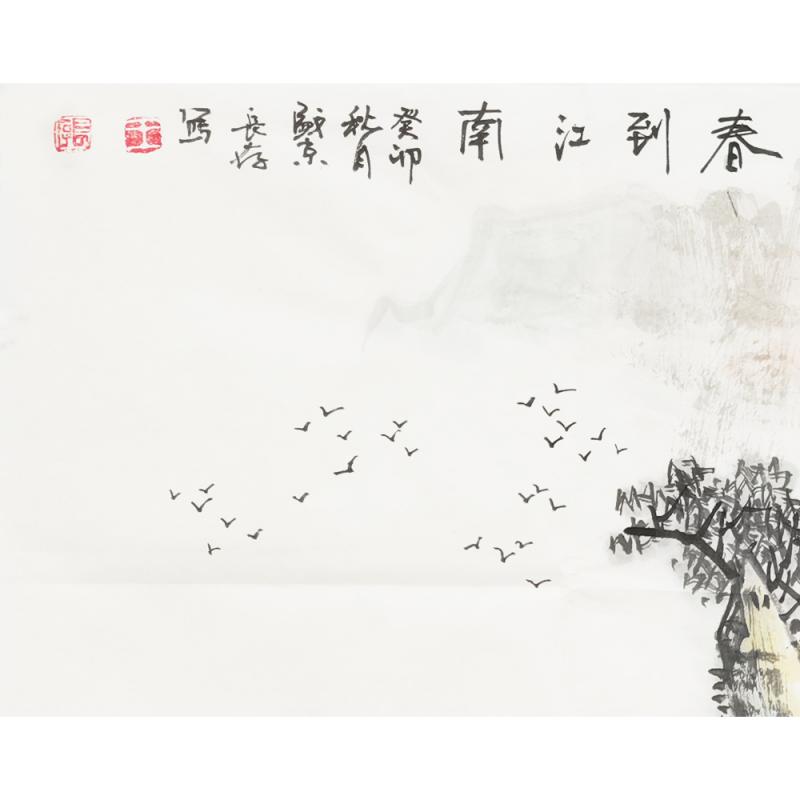 春到江南
癸卯
秋月
京
長存
寫